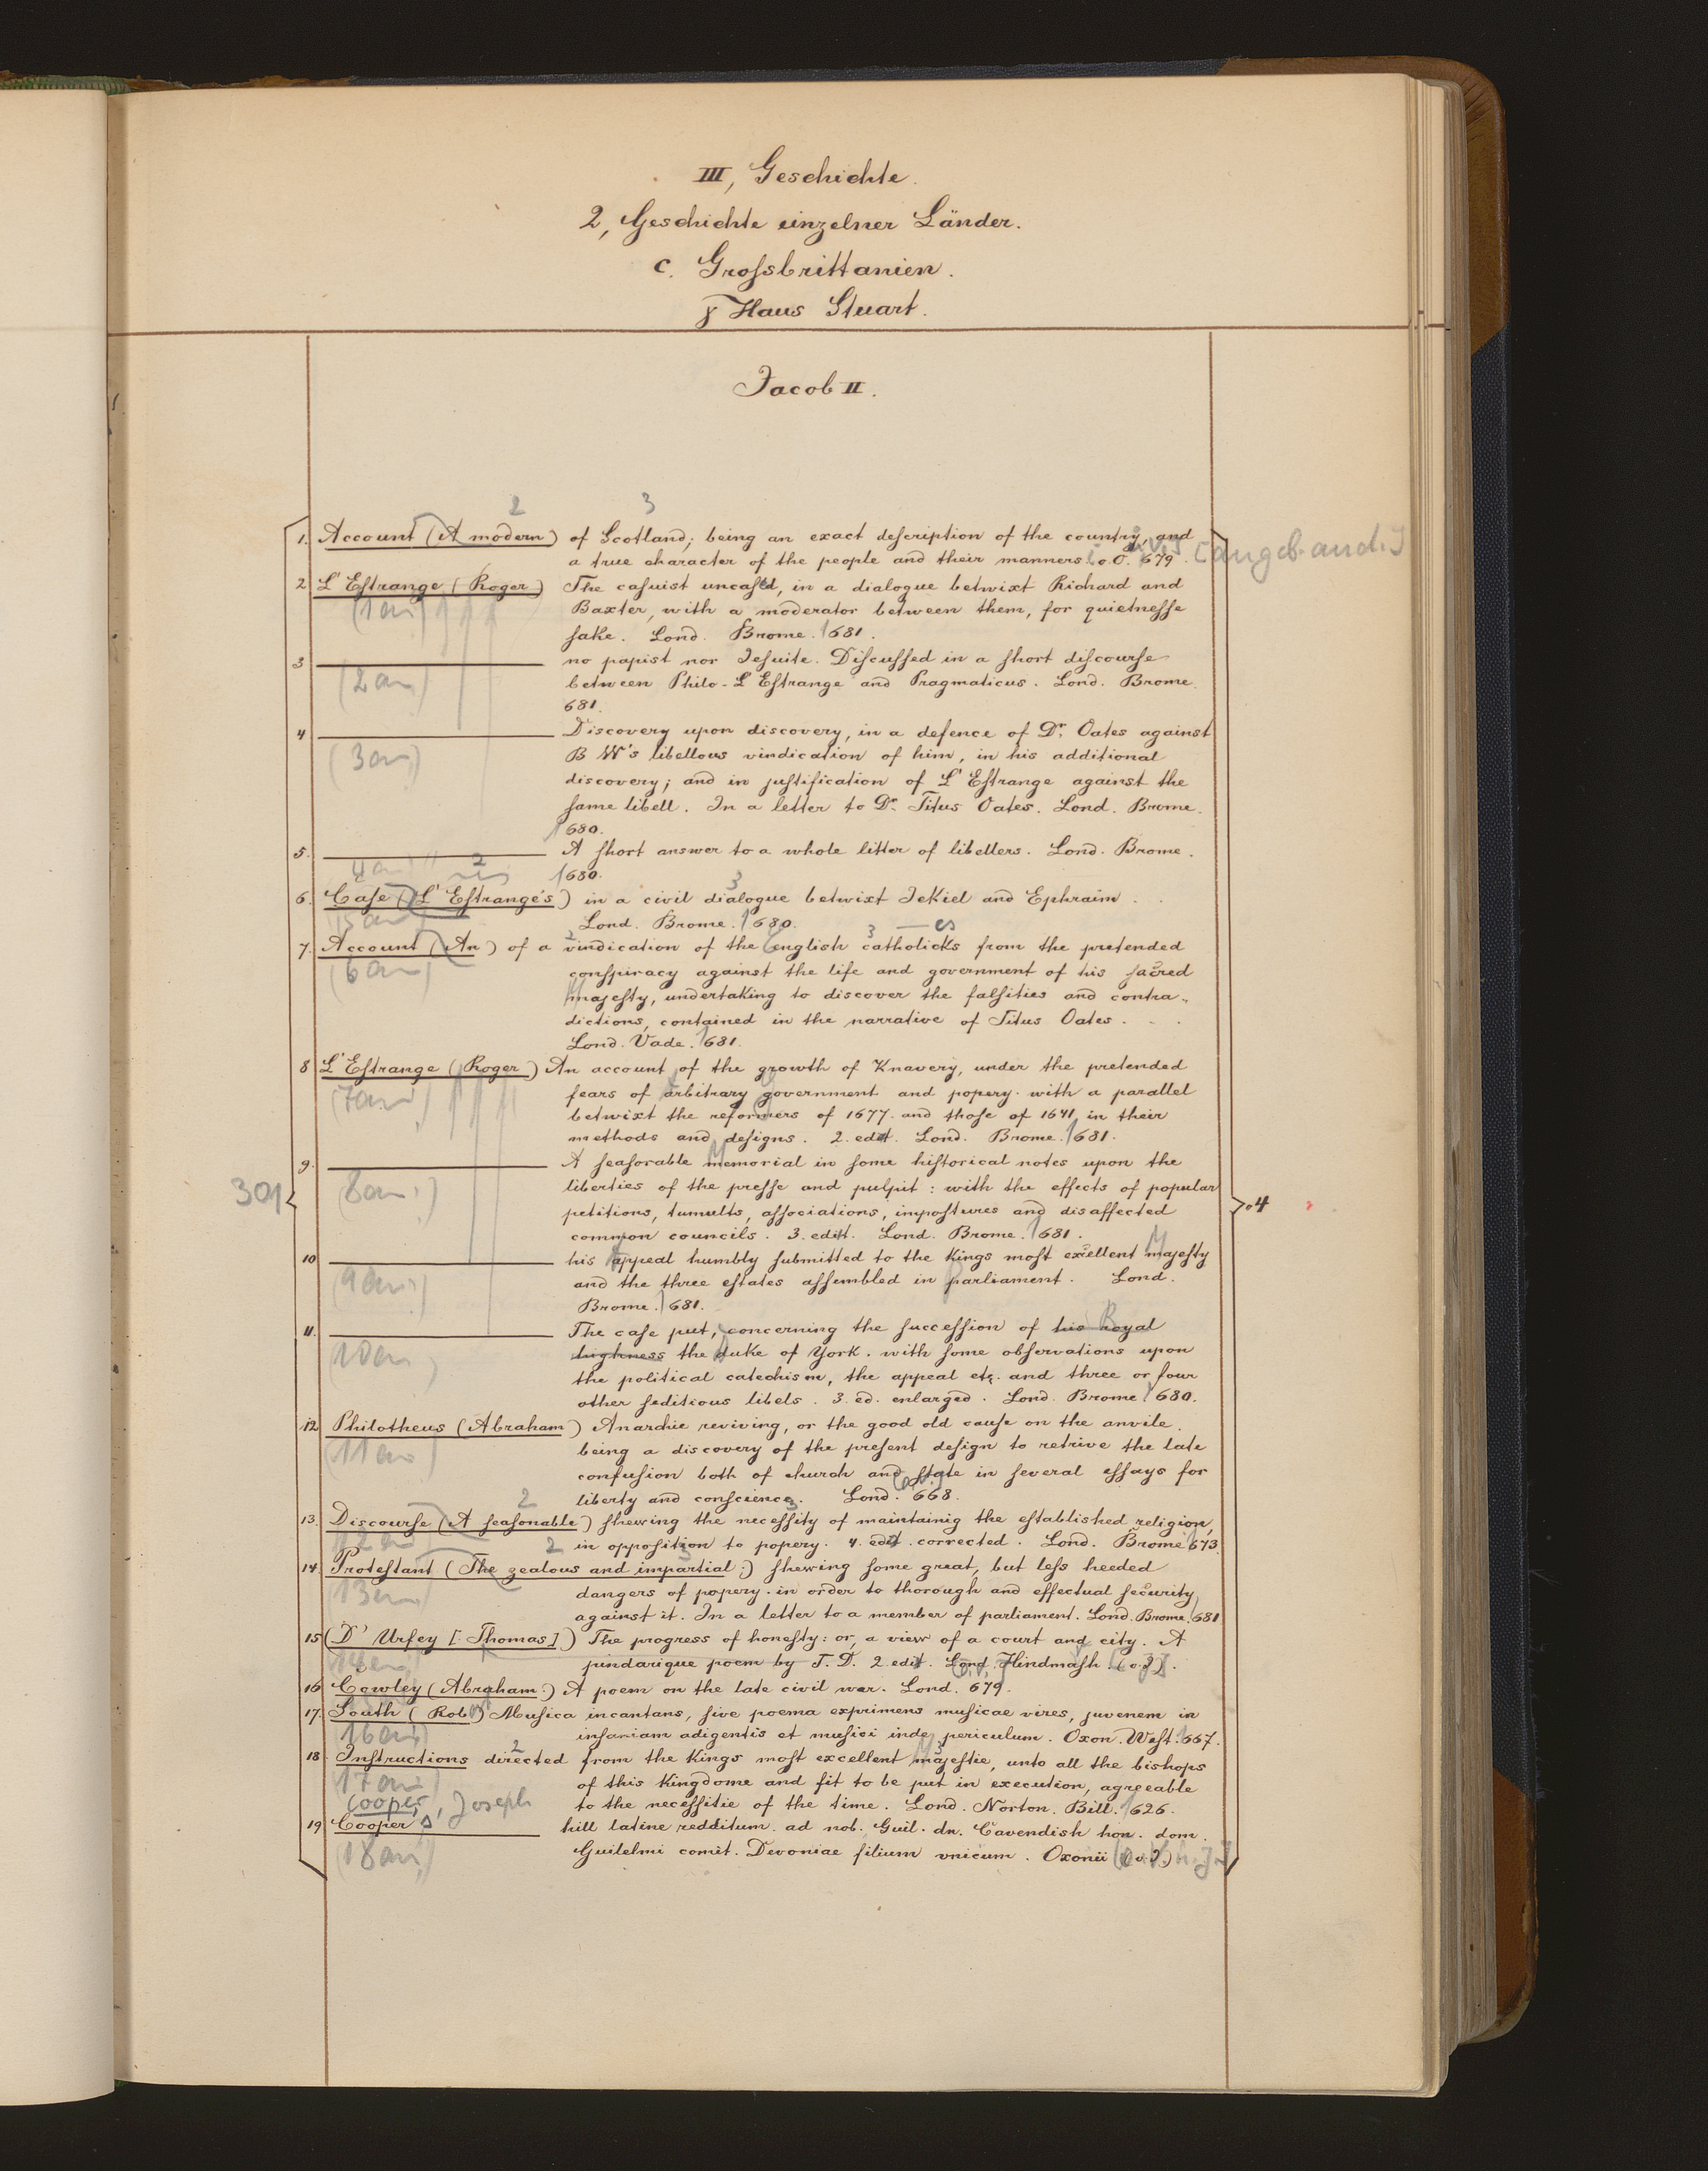 III, Geschichte.
2, Geschichte einzelner Länder.
c. Grofsbrittanien.
γ Haus Stuart.
Jacob II.
2 3
1. Account (A modern) of Scotland; being an exact description of the country, and
a true character of the people and their manners. o. O. 679. [angeb. and.]
2 L'Estrange (Roger) The casuist uncased, in a dialogue betwixt Richard and
(1an) Baxter, with a moderator between them, for quietnesse
sake. Lond. Brome. 1681.
3 no papist nor Jesuite. Discussed in a short discourse
(2an) between Philo-L'Estrange and Pragmaticus. Lond. Brome.
681.
4 Discovery upon discovery, in a defence of Dr. Oates against
(3an) B W's libellous vindication of him, in his additional
discovery; and in justification of L'Estrange against the
same libell. In a letter to Dr. Titus Oates. Lond. Brome.
1680.
5. A short answer to a whole litter of libellers. Lond. Brome.
4an 2 1680.
6. Case (L'Estrange's) in a civil dialogue betwixt Jekiel and Ephraim . .
(5an) Lond. Brome. 1680.
7. Account (An) of a vindication of the English catholicks from the pretended
(6an) conspiracy against the life and government of his sacred
Majesty, undertaking to discover the falsities and contra-
dictions, contained in the narrative of Titus Oates. . .
Lond. Vade. 1681.
8 L'Estrange (Roger) An account of the growth of Knavery, under the pretended
(7an) fears of arbitrary government and popery. with a parallel
betwixt the reformers of 1677. and those of 1641, in their
methods and designs. 2. edit. Lond. Brome. 1681.
9. A seasorable memorial in some historical notes upon the
301 (8an) liberties of the presse and pulpit: with the effects of popular .4
petitions, tumults, associations, impostures and disaffected
common councils. 3. edit. Lond. Brome. 1681.
10 his appeal humbly submitted to the Kings most excellent Majesty
(9an) and the three estates assembled in parliament. Lond.
Brome. 1681.
11. The case put, concerning the succession of his Royal
(10an) highness the duke of York. with some observations upon
the political catechism, the appeal etc. and three or four
other seditious libels. 3. ed. enlarged. Lond. Brome 1680.
12 Philotheus (Abraham) Anarchie reviving, or the good old cause on the anvile.
(11an) being a discovery of the present design to retrive the late
confusion both of church and state in several essays for
liberty and conscience. Lond. 668.
13. Discourse (A seasonable) shewing the necessity of maintainig the established religion,
(12an) in opposition to popery. 4. edit. corrected. Lond. Brome 1673.
14. Protestant (The zealous and impartial:) shewing some great, but less heeded
13an dangers of popery. in order to thorough and effectual security
against it. In a letter to a member of parliament. Lond. Brome. 1681
15 (D' Urfey [Thomas]) The progress of honesty: or, a view of a court and city. A
14an pindarique poem by T. D. 2. edit. Lond. Hindmash. (o. J.).
16 Cowley (Abraham:) A poem on the late civil war. Lond. 679.
17. South (Rob.) Musica incantans, sive poema exprimens musicae vires, juvenem in
(16an) insaniam adigentis et musici inde periculum. Oxon. West. 1667.
18 Instructions directed from the Kings most excellent Majestie, unto all the bishops
17an of this Kingdome and fit to be put in execution, agreeable
Cooper, Joseph to the necessitie of the time. Lond. Norton. Bill. 1626.
19 Cooper hill latine redditum. ad nob. Guil. dn. Cavendish hon. dom.
(18an) Guilelmi comit. Devoniae filium vnicum. Oxonii (o. J.)